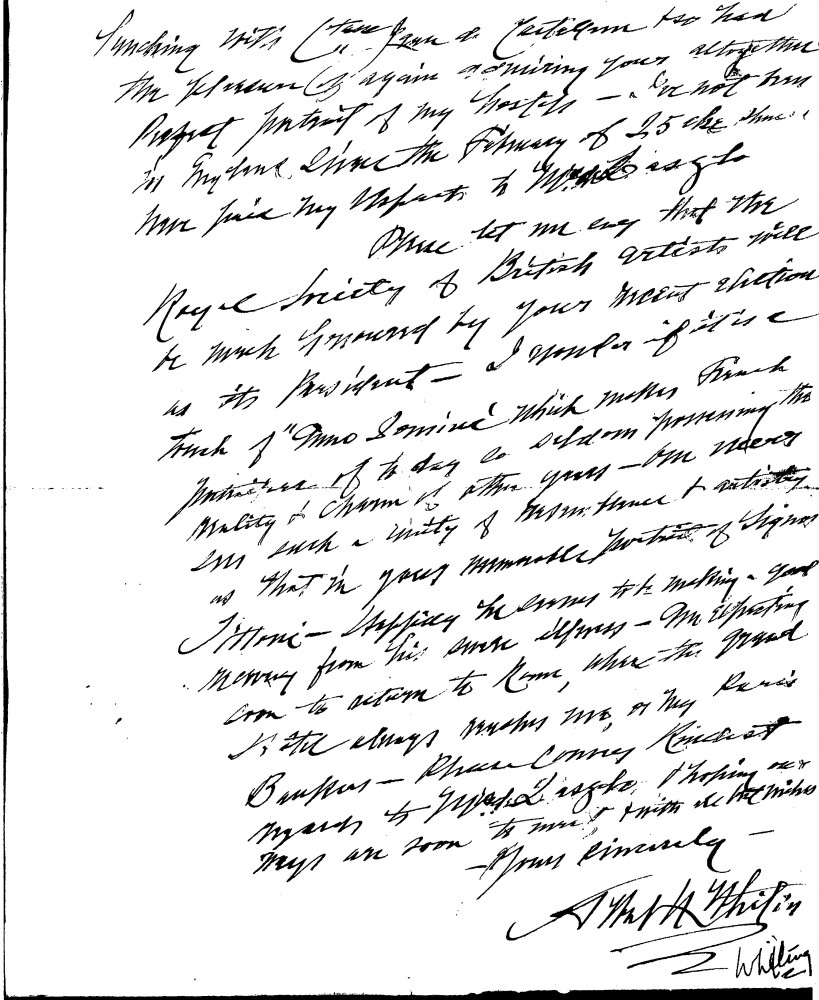 Lunching with Ctsse Jean de Castellane & so had
the pleasure of again admiring your altogether
perfect portrait of my hostess — I've not been
in England since the February of 25 else should
have paid my respects to Mrs de Laszlo
Please let me say that the
Royal Society of British Artists will
be much honoured by your recent election
as its President — I wonder if it is a
touch of "Anno Domini" which makes French
portraiture of to day so seldom possessing the
quality & charm of other years — One never
sees such a unity of resemblance & artistry
as that in your memorable portrait of Signor
Tittoni — Happily he seems to be making a good
recovery from his severe illness — Am expecting
soon to return to Rome, where the Grand
Hotel always reaches me, or my Paris
Bankers — Please convey kindest
regards to Mrs de Laszlo, & hoping our
ways are soon to meet & with all best wishes
— Yours Sincerely —
Whiting